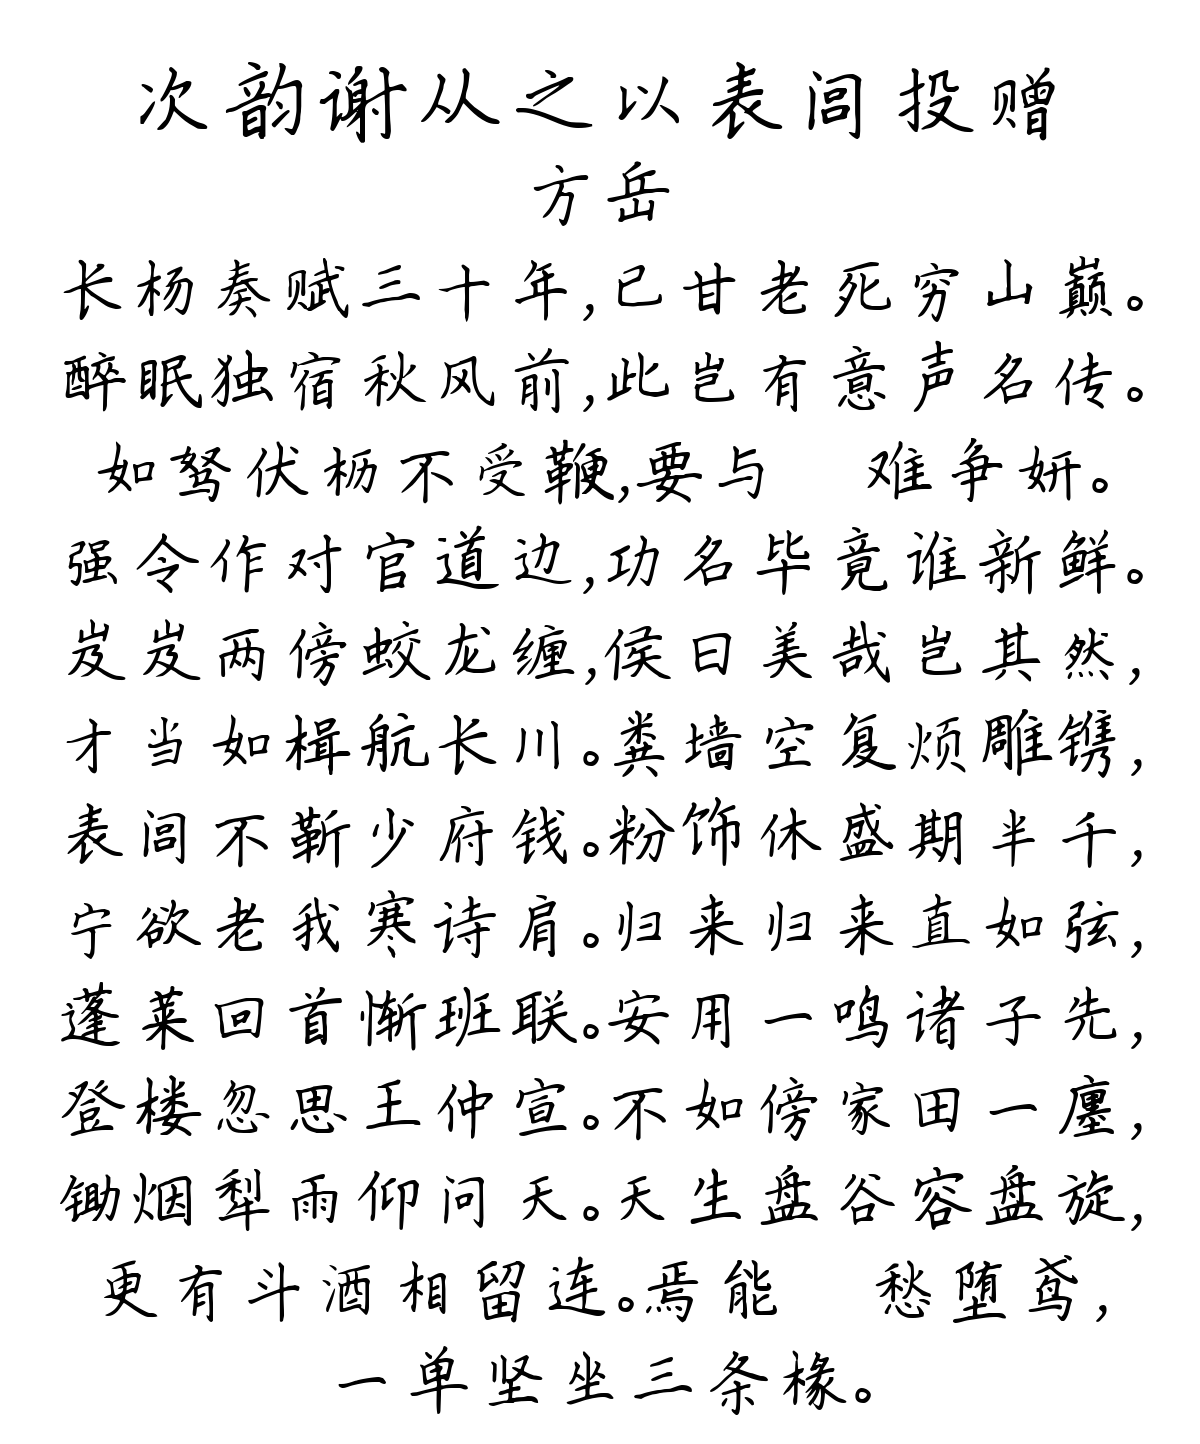 次韵谢从之以表闾投赠
方岳
长杨奏赋三十年,已甘老死穷山巅。
醉眠独宿秋风前,此岂有意声名传。
如驽伏枥不受鞭,要与 难争妍。
强令作对官道边,功名毕竟谁新鲜。
岌岌两傍蛟龙缠,侯曰美哉岂其然,
才当如楫航长川。粪墙空复烦雕镌,
表闾不靳少府钱。粉饰休盛期半千,
宁欲老我寒诗肩。归来归来直如弦,
蓬莱回首惭班联。安用一鸣诸子先,
登楼忽思王仲宣。不如傍家田一廛,
锄烟犁雨仰问天。天生盘谷容盘旋,
更有斗酒相留连。焉能 愁堕鸢,
一单坚坐三条椽。